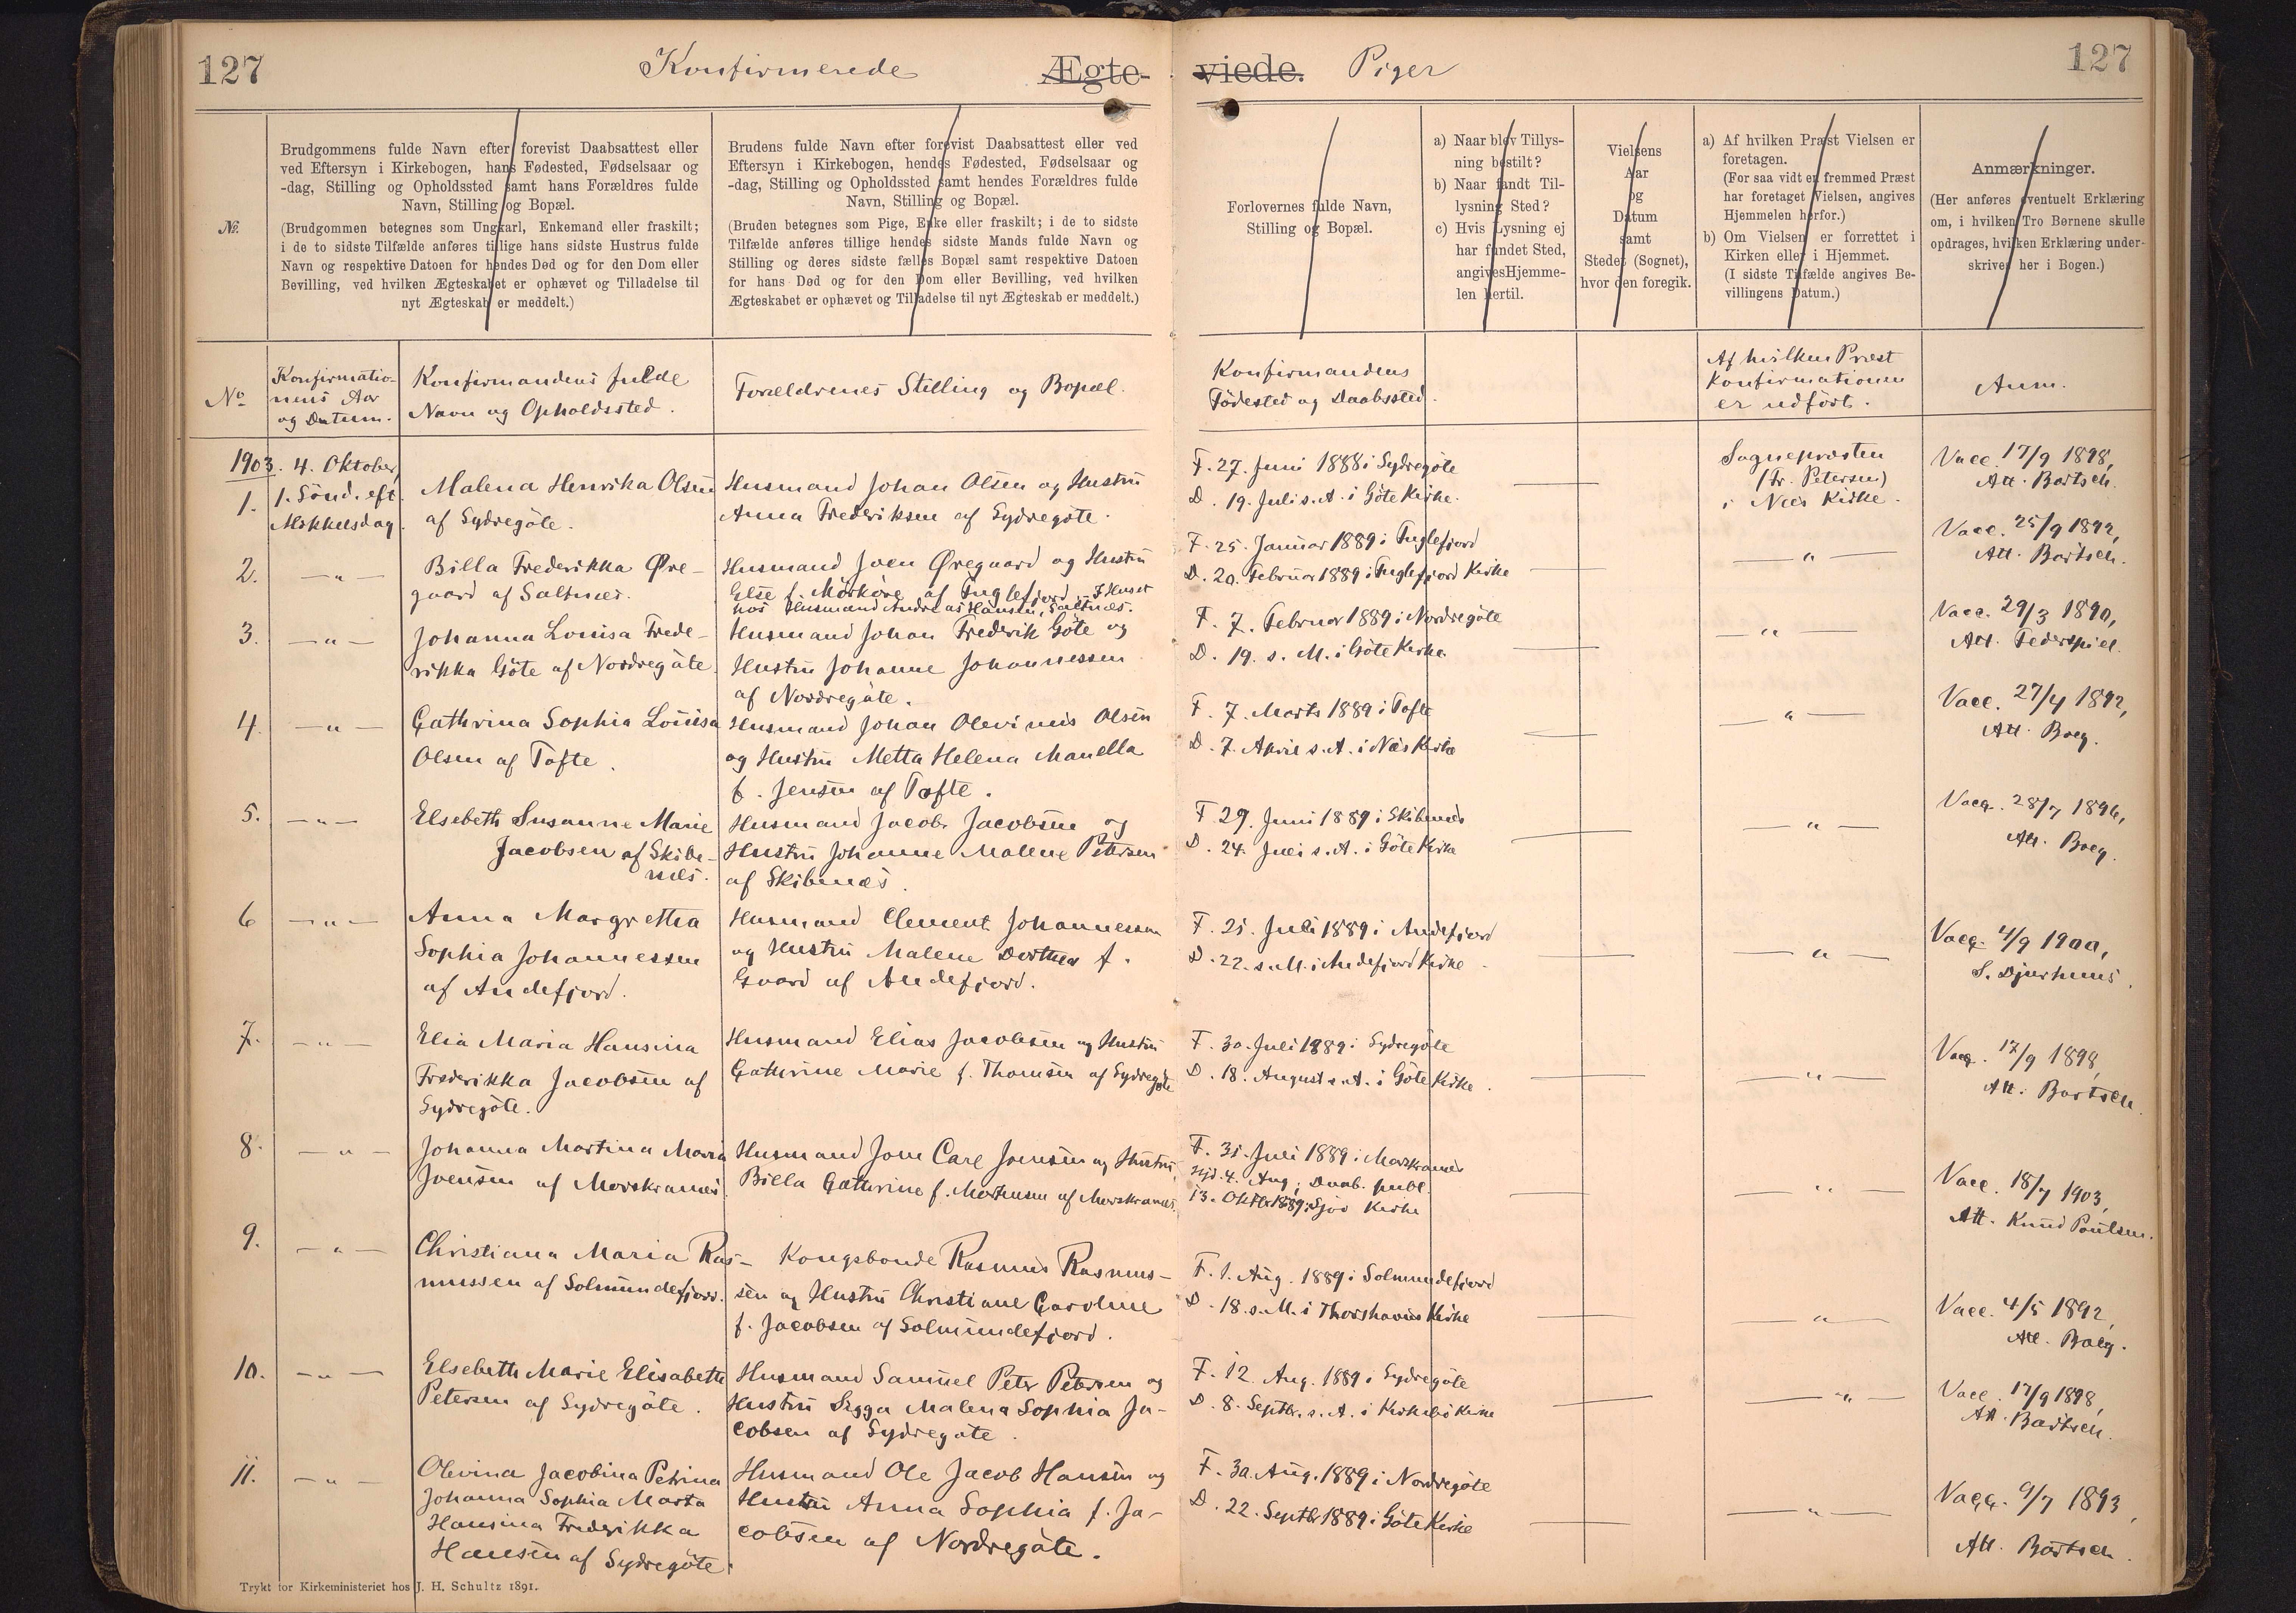 127
Konfirmerede
Ægte-
viede.
Piger
127
№
Brudgommens fulde Navn efter forevist Daabsattest eller
ved Eftersyn i Kirkebogen, hans Fødested, Fødselsaar og
-dag, Stilling og Opholdssted samt hans Forældres fulde
Navn, Stilling og Bopæl.
(Brudgommen betegnes som Ungkarl, Enkemand eller fraskilt;
i de to sidste Tilfælde anføres tillige hans sidste Hustrus fulde
Navn og respektive Datoen for hendes Død og for den Dom eller
Bevilling, ved hvilken Ægteskabet er ophævet og Tilladelse til
nyt Ægteskab er meddelt.)
Brudens fulde Navn efter forevist Daabsattest eller ved
Eftersyn i Kirkebogen, hendes Fødested, Fødselsaar og
-dag, Stilling og Opholdssted samt hendes Forældres fulde
Navn, Stilling og Bopæl.
(Bruden betegnes som Pige, Enke eller fraskilt; i de to sidste
Tilfælde anføres tillige hendes sidste Mands fulde Navn og
Stilling og deres sidste fælles Bopæl samt respektive Datoen
for hans Død og for den Dom eller Bevilling, ved hvilken
Ægteskabet er ophævet og Tilladelse til nyt Ægteskab er meddelt.)
Forlovernes fulde Navn,
Stilling og Bopæl.
a) Naar blev Tillys-
ning bestilt?
b) Naar fandt Til-
lysning Sted?
c) Hvis Lysning ej
har fundet Sted,
angives Hjemme-
len hertil.
Vielsens
Aar
og
Datum
samt
Stedet (Sognet),
hvor den foregik.
a) Af hvilken Præst Vielsen er
foretagen.
(For saa vidt en fremmed Præst
har foretaget Vielsen, angives
Hjemmelen herfor.)
b) Om Vielsen er forrettet i
Kirken eller i Hjemmet.
(I sidste Tilfælde angives Be-
villingens Datum.)
Anmærkninger.
(Her anføres eventuelt Erklæring
om, i hvilken Tro Børnene skulle
opdrages, hvilken Erklæring under-
skrives her i Bogen.)
No
Konfirmatio-
nens Aar
og Datum.
Konfirmandens fulde
Navn og Opholdssted.
Forældrenes Stilling og Bopæl.
Konfirmandens
Fødested og Daabssted.
Af hvilken Præst
Konfirmationen
er udført.
Anm.
1903. 4. Oktober,
1. 1. Sönd. eft.
Mikkelsdag.
Malena Henrika Olsen
af Sydregöte.
Husmand Johan Olsen og Hustru
Anna Frederiksen af Sydregöte.
F. 27. Juni 1888 i Sydregöte
D. 19. Juli s. A. i Göte Kirke.
Sognepræsten
(Fr. Petersen)
i Næs Kirke.
Vacc. 17/9 1898,
Att. Bartsch.
2. —"—
Billa Frederikka Øre-
gaard af Saltnæs.
Husmand Joen Øregaard og Hustru
Else f. Mörköre af Fuglefjord, I Huset
hos Husmand Andreas Hansen, Saltnæs.
F. 25. Januar 1889 i Fuglefjord
D. 20. Februar 1889 i Fuglefjord Kirke
—"—
Vacc. 25/9 1892,
Att. Bartsch.
3. —"—
Johanna Louisa Frede-
rikka Göte af Nordregöte
Husmand Johan Frederik Göte og
Hustru Johanne Johannessen
af Nordregöte.
F. 7. Februar 1889 i Nordregöte
D. 19. s. M. i Göte Kirke
—"—
Vacc. 29/3 1890,
Att. Federspiel.
4. —"—
Cathrina Sophia Louisa
Olsen af Tofte.
Husmand Johan Olevinus Olsen
og Hustru Metta Helena Manella
f. Jensen af Tofte.
F. 7. Marts 1889 i Tofte
D. 7. April s. A. i Næs Kirke
—"—
Vacc. 27/4 1892,
Att. Boeg.
5. —"—
Elsebeth Susanne Marie
Jacobsen af Skibe-
næs.
Husmand Jacob Jacobsen og
Hustru Johanne Malene Petersen
af Skibenæs.
F. 29. Juni 1889 i Skibenæs
D. 24. Juli s. A. i Göte Kirke
—"—
Vacc. 28/7 1896,
Att. Boeg.
6 —"—
Anna Margretha
Sophia Johannessen
af Andefjord.
Husmand Clement Johannessen
og Hustru Malene Dorthea f.
Gaard af Andefjord.
F. 21. Juli 1889 i Andefjord
D. 22. s. M. i Andefjord Kirke
—"—
Vacc. 4/9 1900,
S. Djurhuus.
7. —"—
Elia Maria Hansina
Frederikka Jacobsen af
Sydregöte.
Husmand Elias Jacobsen og Hustru
Cathrine Marie f. Thomsen af Sydregöte
F. 30. Juli 1889 i Sydregöte
D. 18. August s. A. i Göte Kirke.
—"—
Vacc. 17/9 1898,
Att. Bartsch.
8. —"—
Johanna Martina Maria
Joensen af Morskranæs.
Husmand Joen Carl Joensen og Hustru
Billa Cathrine f. Mortensen af Morskranæs.
F. 31. Juli 1889 i Morskranæs
Hjd. 4. Aug; Daab. publ.
13. Oktbr 1889 i Sjov Kirke
—"—
Vacc. 18/7 1903,
Att. Knud Poulsen.
9. —"—
Christiana Maria Ras-
mussen af Solmundefjord.
Kongsbonde Rasmus Rasmus-
sen og Hustru Christiane Caroline
f. Jacobsen af Solmundefjord.
F. 1. Aug. 1889 i Solmundefjord
D. 18. s. M. i Thorshavns Kirke
—"—
Vacc. 4/5 1892,
Att. Boeg.
10. —"—
Elsebeth Marie Elisabeth
Petersen af Sydregöte.
Husmand Samuel Peter Petersen og
Hustru Sigga Malena Sophia Ja-
cobsen af Sydregöte.
F. 12. Aug. 1889 i Sydregöte
D. 8. Septbr. s. A. i Kirkebö Kirke
—"—
Vacc. 17/9 1898,
Att. Bartsch.
11. —"—
Olevina Jacobina Petrina
Johanna Sophia Marta
Hansina Frederikka
Hansen af Sydregöte.
Husmand Ole Jacob Hansen og
Hustru Anna Sophia f. Ja-
cobsen af Nordregöte.
F. 30. Aug. 1889 i Nordregöte
D. 22. Septbr 1889 i Göte Kirke
—"—
Vacc. 9/7 1893,
Att. Bartsch.
Trykt for Kirkeministeriet hos J. H. Schultz 1891.